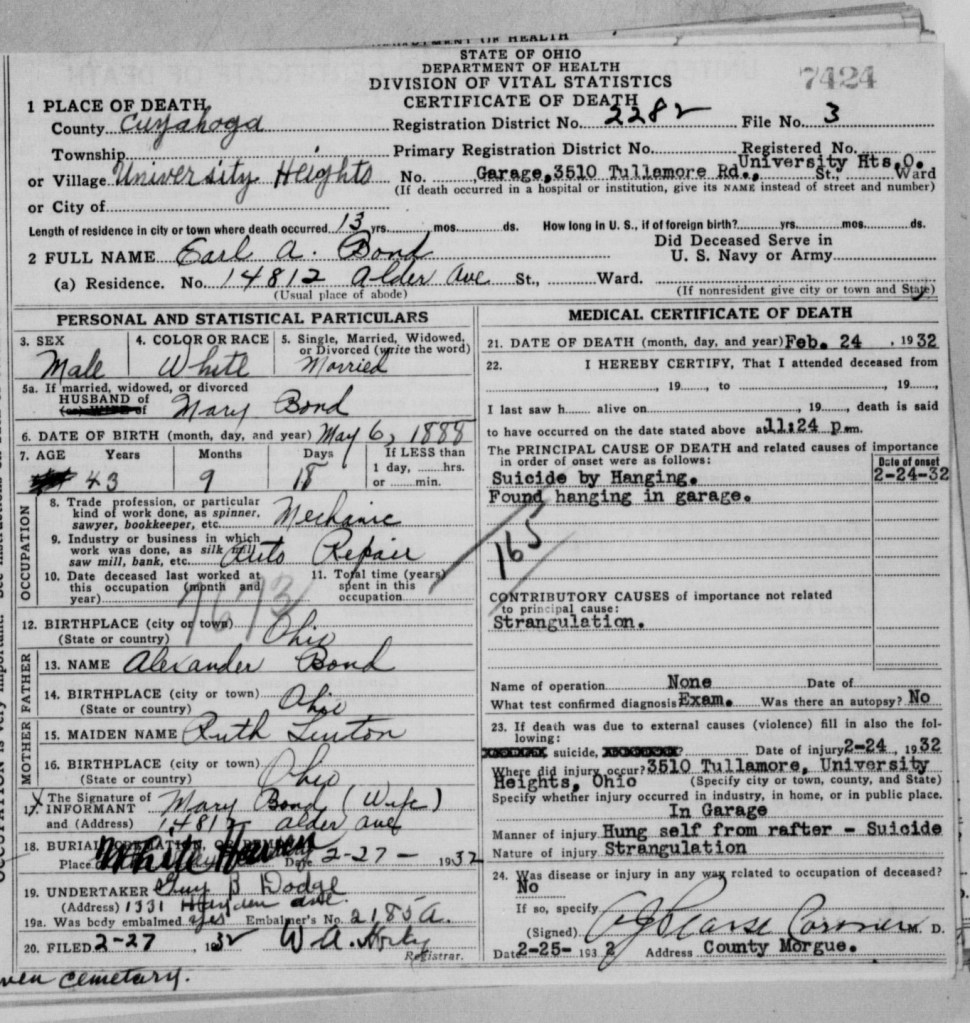 DEPARTMENT OF HEALTH
STATE OF OHIO
DEPARTMENT OF HEALTH
DIVISION OF VITAL STATISTICS
CERTIFICATE OF DEATH
7424
1 PLACE OF DEATH
County Cuyahoga
Registration District No. 2282 File No. 3
Township
Primary Registration District No. Registered No.
or Village University Heights
No. Garage, 3510 Tullamore Rd., University Hts. O. St., Ward
(If death occurred in a hospital or institution, give its NAME instead of street and number)
or City of
Length of residence in city or town where death occurred 13 yrs. mos. ds. How long in U. S., if of foreign birth? yrs. mos. ds.
2 FULL NAME Earl A. Bond
Did Deceased Serve in
U. S. Navy or Army
(a) Residence. No. 14812 Alder Ave St., Ward.
(Usual place of abode) (If nonresident give city or town and State)
PERSONAL AND STATISTICAL PARTICULARS
3. SEX
Male
4. COLOR OR RACE
White
5. Single, Married, Widowed,
or Divorced (write the word)
Married
5a. If married, widowed, or divorced
HUSBAND of
(or) WIFE of
Mary Bond
6. DATE OF BIRTH (month, day, and year) May 6, 1888
7. AGE Years Months Days If LESS than
1 day, hrs.
or min.
43 9 18
OCCUPATION
8. Trade profession, or particular
kind of work done, as spinner,
sawyer, bookkeeper, etc. Mechanic
9. Industry or business in which
work was done, as silk mill,
saw mill, bank, etc. Auto Repair
10. Date deceased last worked at
this occupation (month and
year)
11. Total time (years)
spent in this
occupation
12. BIRTHPLACE (city or town)
(State or country) Ohio
FATHER
13. NAME Alexander Bond
14. BIRTHPLACE (city or town)
(State or country) Ohio
MOTHER
15. MAIDEN NAME Ruth Linton
16. BIRTHPLACE (city or town)
(State or country) Ohio
17. The Signature of
INFORMANT Mary Bond (Wife)
and (Address) 14812 Alder Ave
18. BURIAL, CREMATION, OR
Place White Haven Date 2-27- 1932
19. UNDERTAKER Guy B Dodge
(Address) 1331 Hayden Ave.
19a. Was body embalmed Yes Embalmer's No. 2185A.
20. FILED 2-27 1932
Registrar.
ven cemetary.
MEDICAL CERTIFICATE OF DEATH
21. DATE OF DEATH (month, day, and year) Feb. 24 , 1932
22. I HEREBY CERTIFY, That I attended deceased from
, 19 , to , 19 ,
I last saw h alive on , 19 , death is said
to have occurred on the date stated above a 11:24 p.m.
The PRINCIPAL CAUSE OF DEATH and related causes of importance
in order of onset were as follows:
Date of onset
Suicide by Hanging. 2-24-32
Found hanging in garage.
165
CONTRIBUTORY CAUSES of importance not related
to principal cause:
Strangulation.
Name of operation None Date of
What test confirmed diagnosis Exam. Was there an autopsy? No
23. If death was due to external causes (violence) fill in also the fol-
lowing:
suicide, Date of injury 2-24 , 1932
Where did injury occur? 3510 Tullamore, University
Heights, Ohio (Specify city or town, county, and State)
Specify whether injury occurred in industry, in home, or in public place.
In Garage
Manner of injury Hung self from rafter - Suicide
Nature of injury Strangulation
24. Was disease or injury in any way related to occupation of deceased?
No
If so, specify
(Signed) A J Pearse Coroner M. D.
Date 2-25- 1932 Address County Morgue.